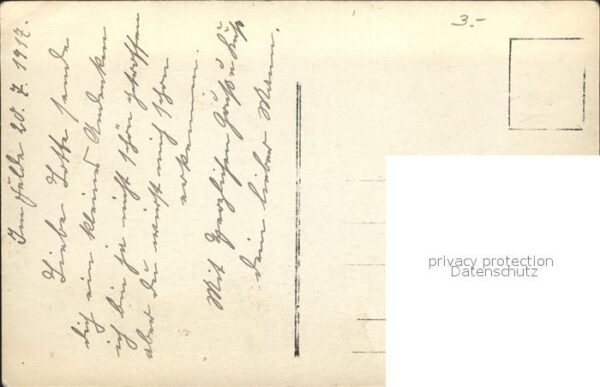 Im Felde 20. 7. 1917.
Liebe Lotte sende
dich ein kleines Andenken
ich bin ja nicht schön getroffen
aber du wirst mich schon
erkennen.
Mit herzlichen Grüße u Kuß
dein lieber Mann.
3.-
privacy protection
Datenschutz